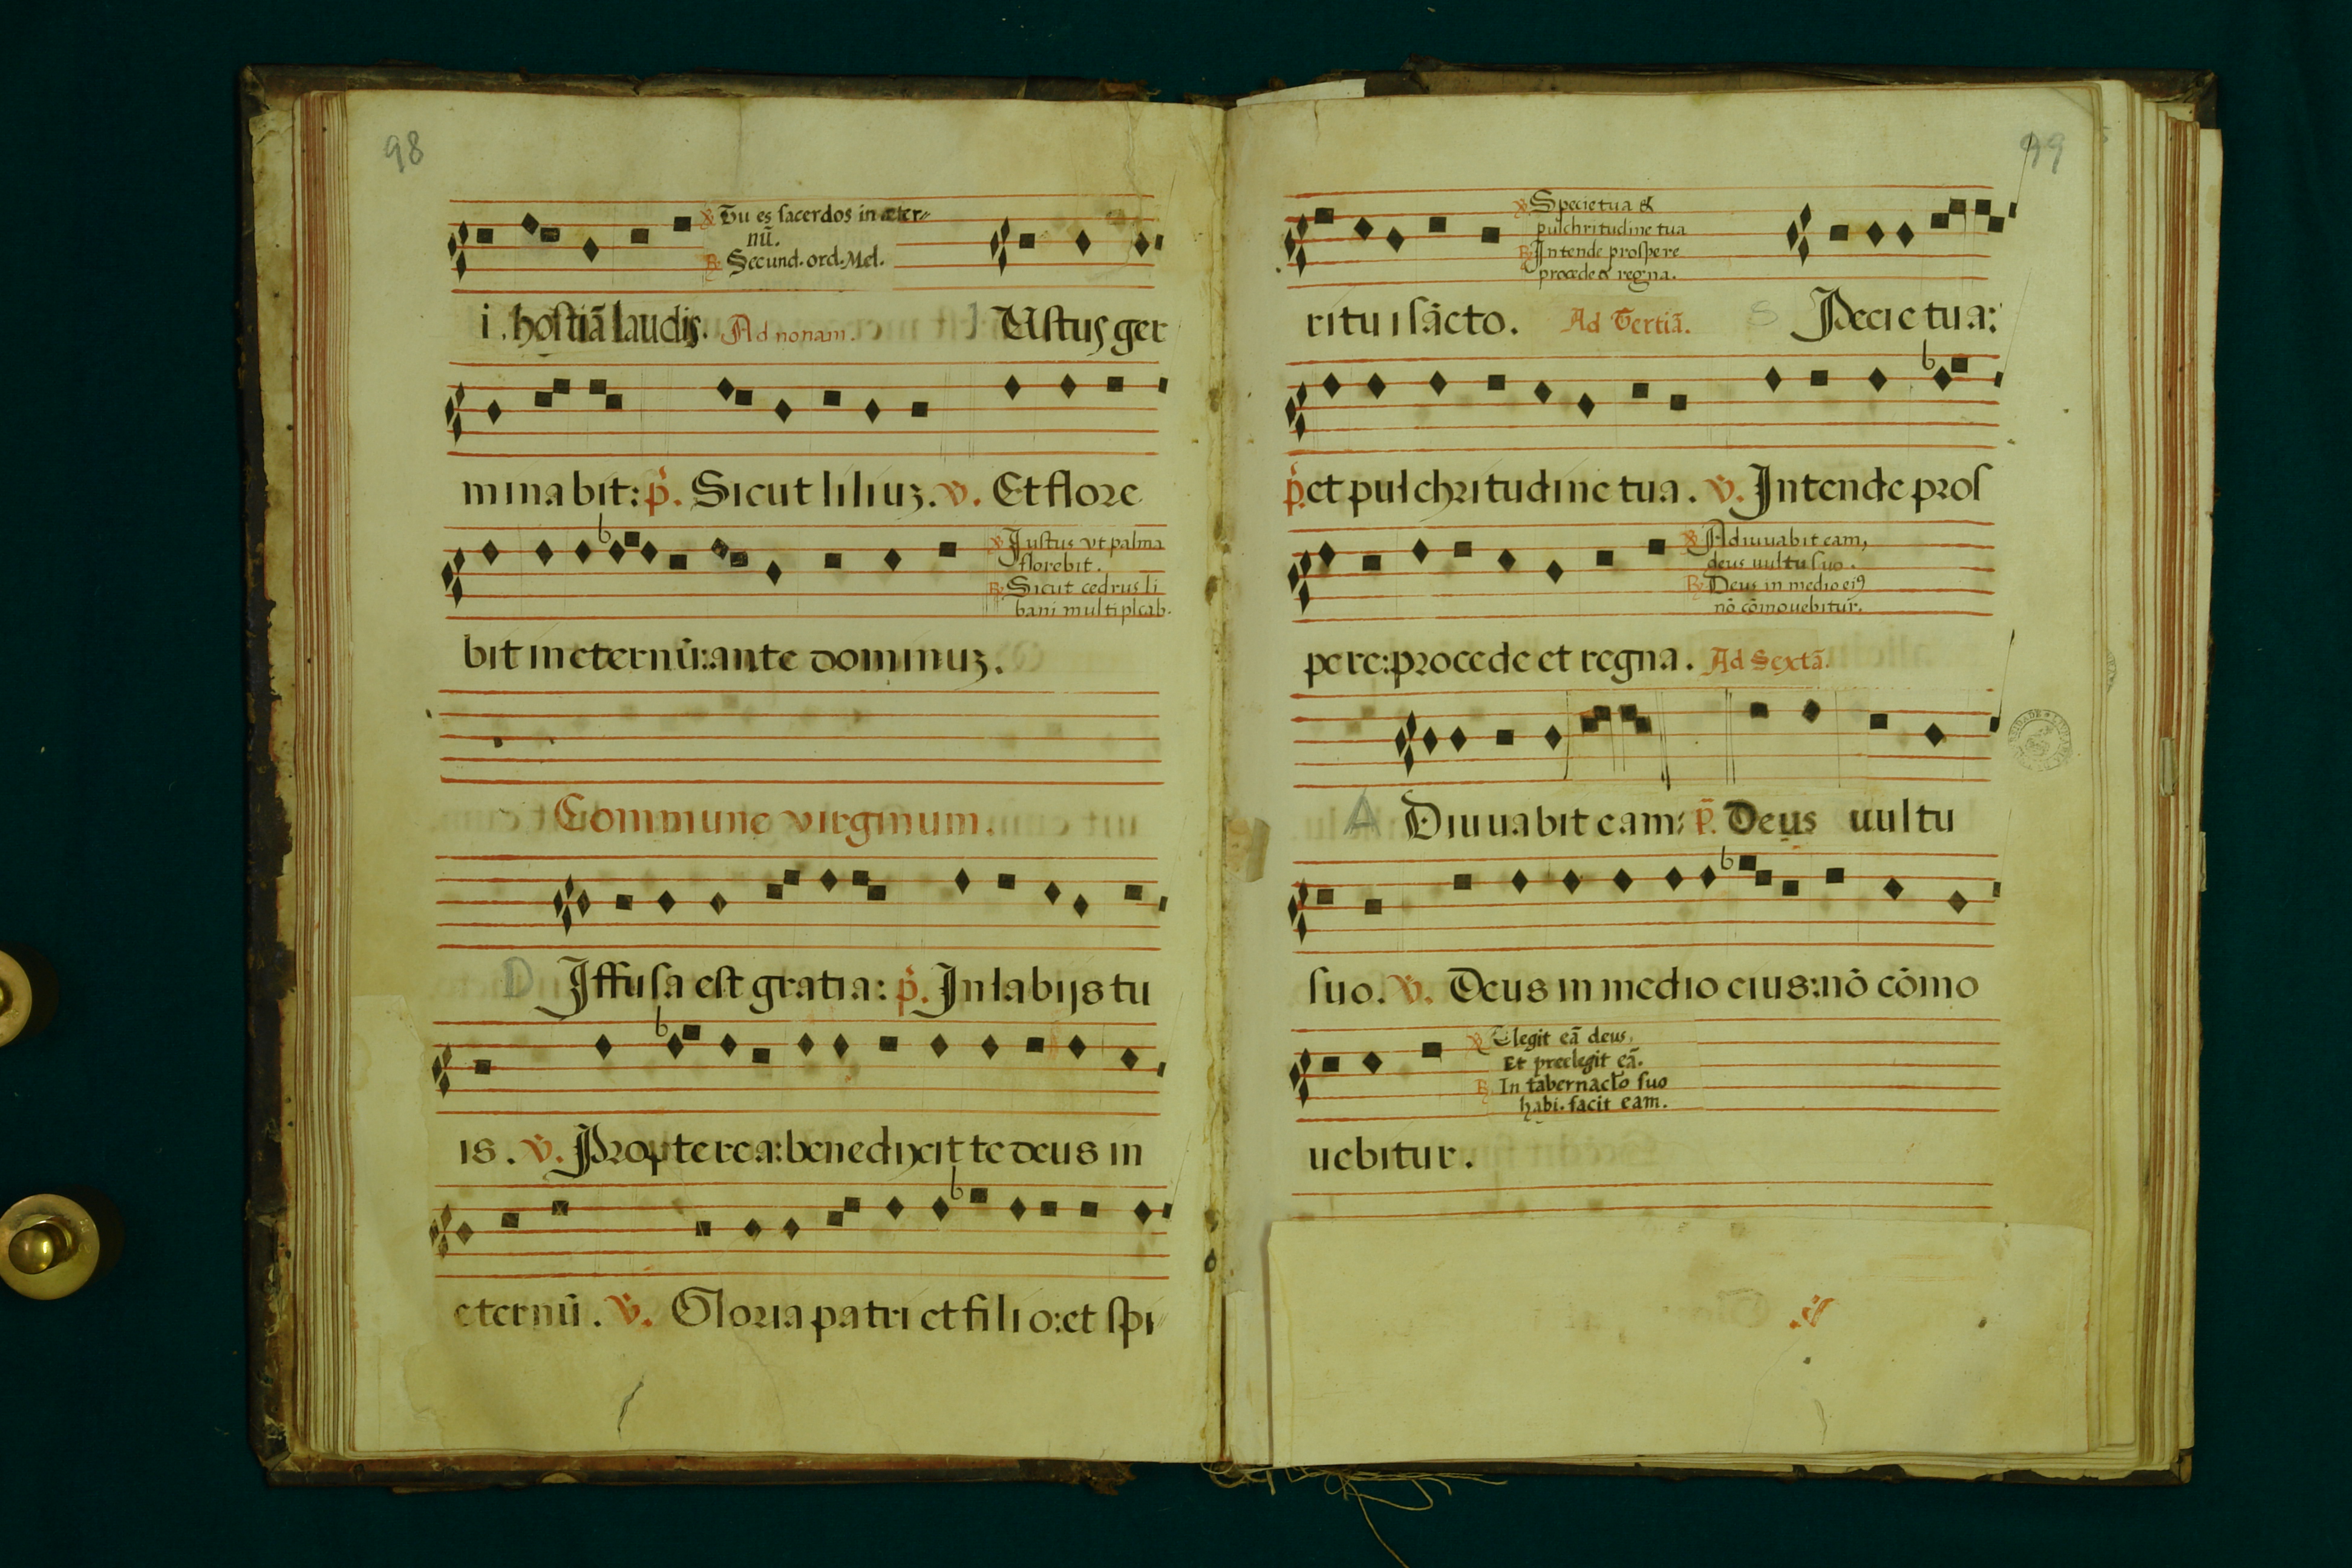 98
℣ Tu es sacerdos in æter⸗
nũ.
℟ Secund. ord. Mel.
i. hostiã laudis. Ad nonam. I Ustus ger
minabit: p̃. Sicut liliuz. v̈. Et flore
℣ Justus vt palma
florebit.
℟ Sicut cedrus li
bani multiplcab.
bit in eternũ: ante dominuz.
Commune virginum.
D Iffusa est gratia: p̃. In labijs tu
is. v̈. Propterea: benedixit te deus in
eternũ. v̈. Gloria patri et filio: et spi⸗
99
℣ Specie tua &
pulchritudine tua
℟ Intende prospere
procede & regna.
ritui sãcto. Ad Tertiã. S Pecie tua:
p̃. et pulchritudine tua. v̈. Intende pros
℣ Adiuuabit eam,
deus uultu suo.
℟ Deus in medio ei9
nõ cõmouebitur.
pere: procede et regna. Ad Sextã.
A Diuuabit eam: p̃. Deus uultu
suo. v̈. Deus in medio eius: nõ cõmo
℣ Elegit eã deus,
Et preelegit eã.
℟ In tabernaclo suo
habi. facit eam.
uebitur.
v̈.